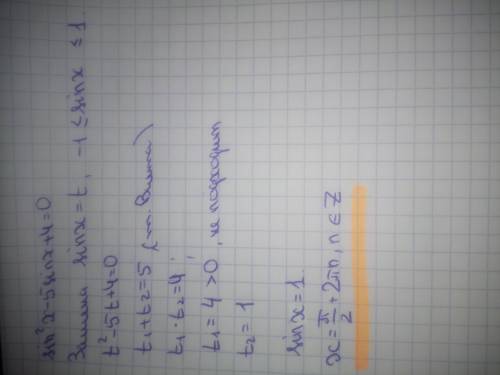 sin²x-5sinx+4=0
Замена sinx=t, -1≤sinx≤1
t²-5t+4=0
t₁+t₂=5 (т. Виета)
t₁·t₂=4
t₁=4>0, не подходит
t₂=1
sinx=1
x=π/2+2πn, n∈Z